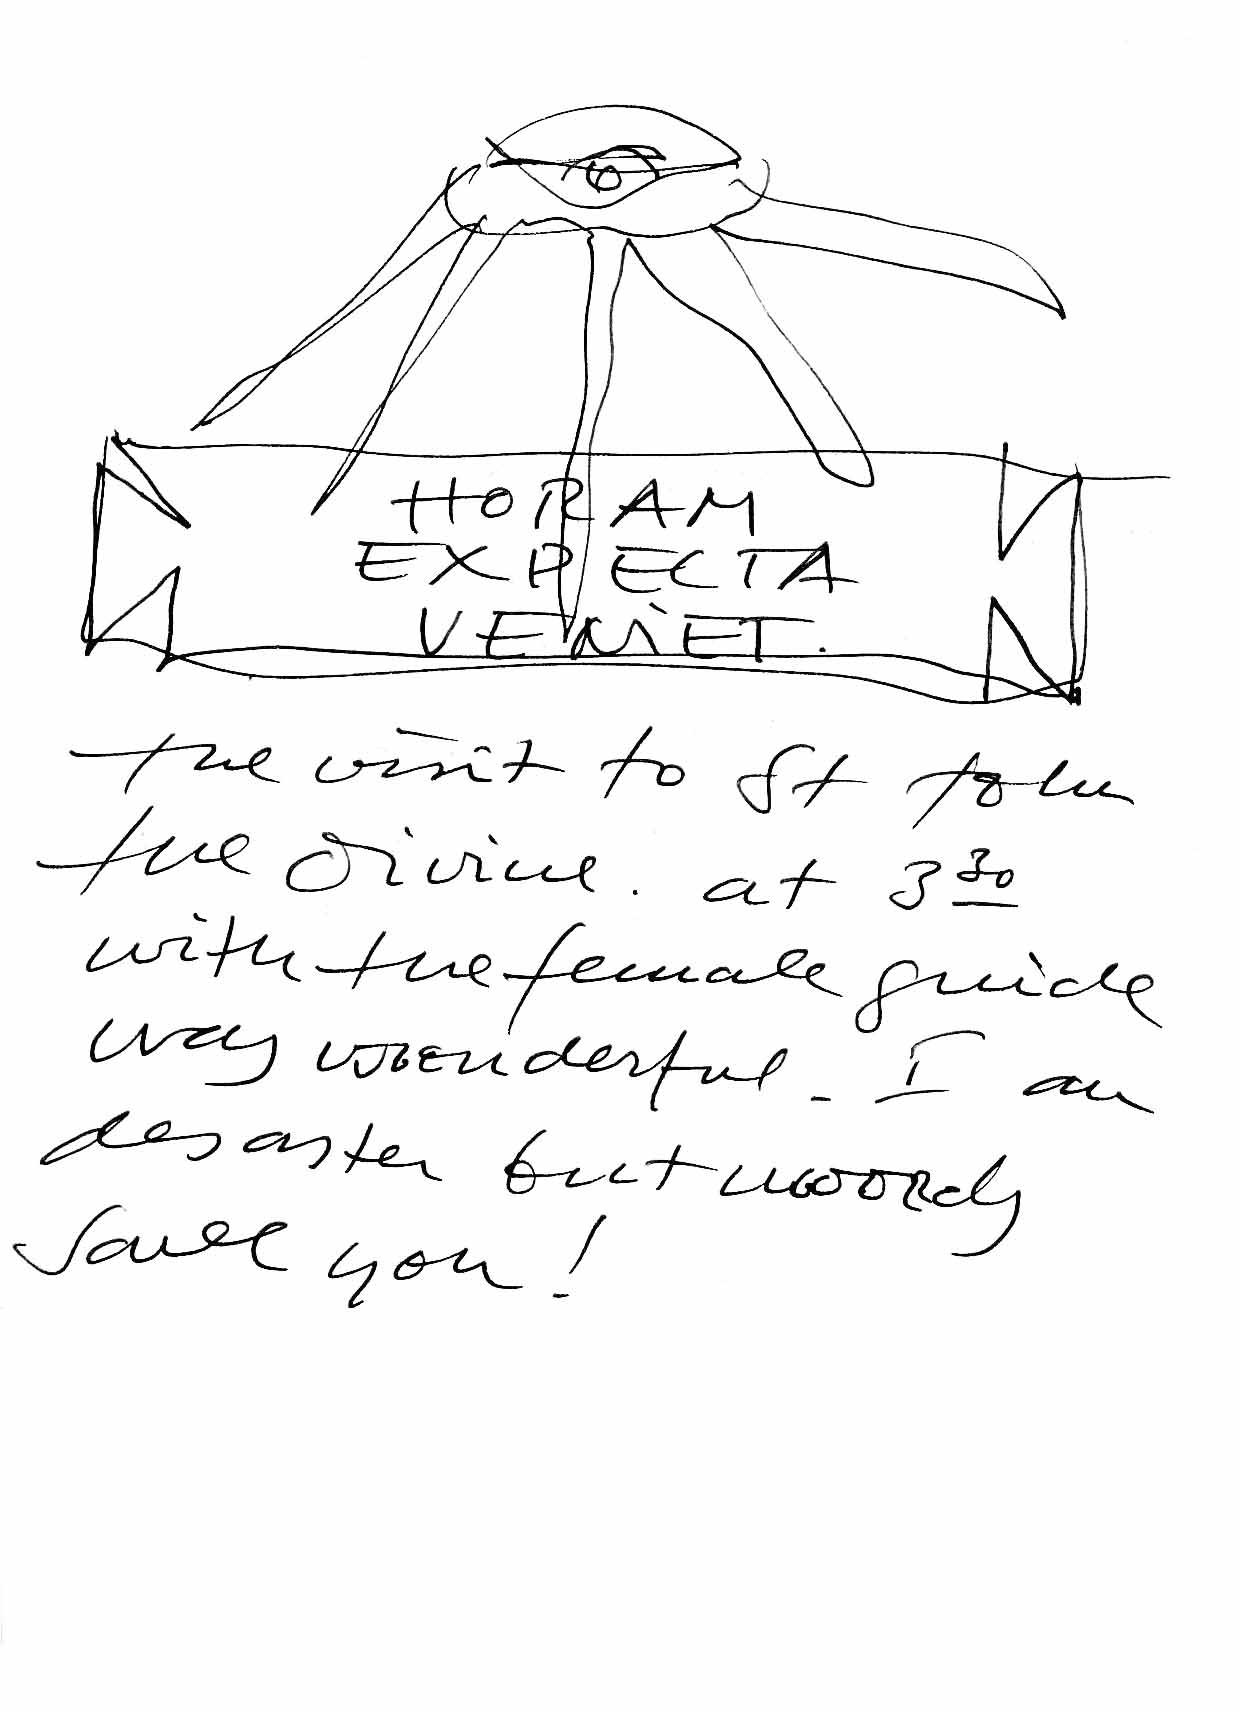 HORAM
EXPECTA
VENIET.
the visit to St John
the Divine. at 3 30
with the female guide
way wonderful - I am
desaster but
save you!